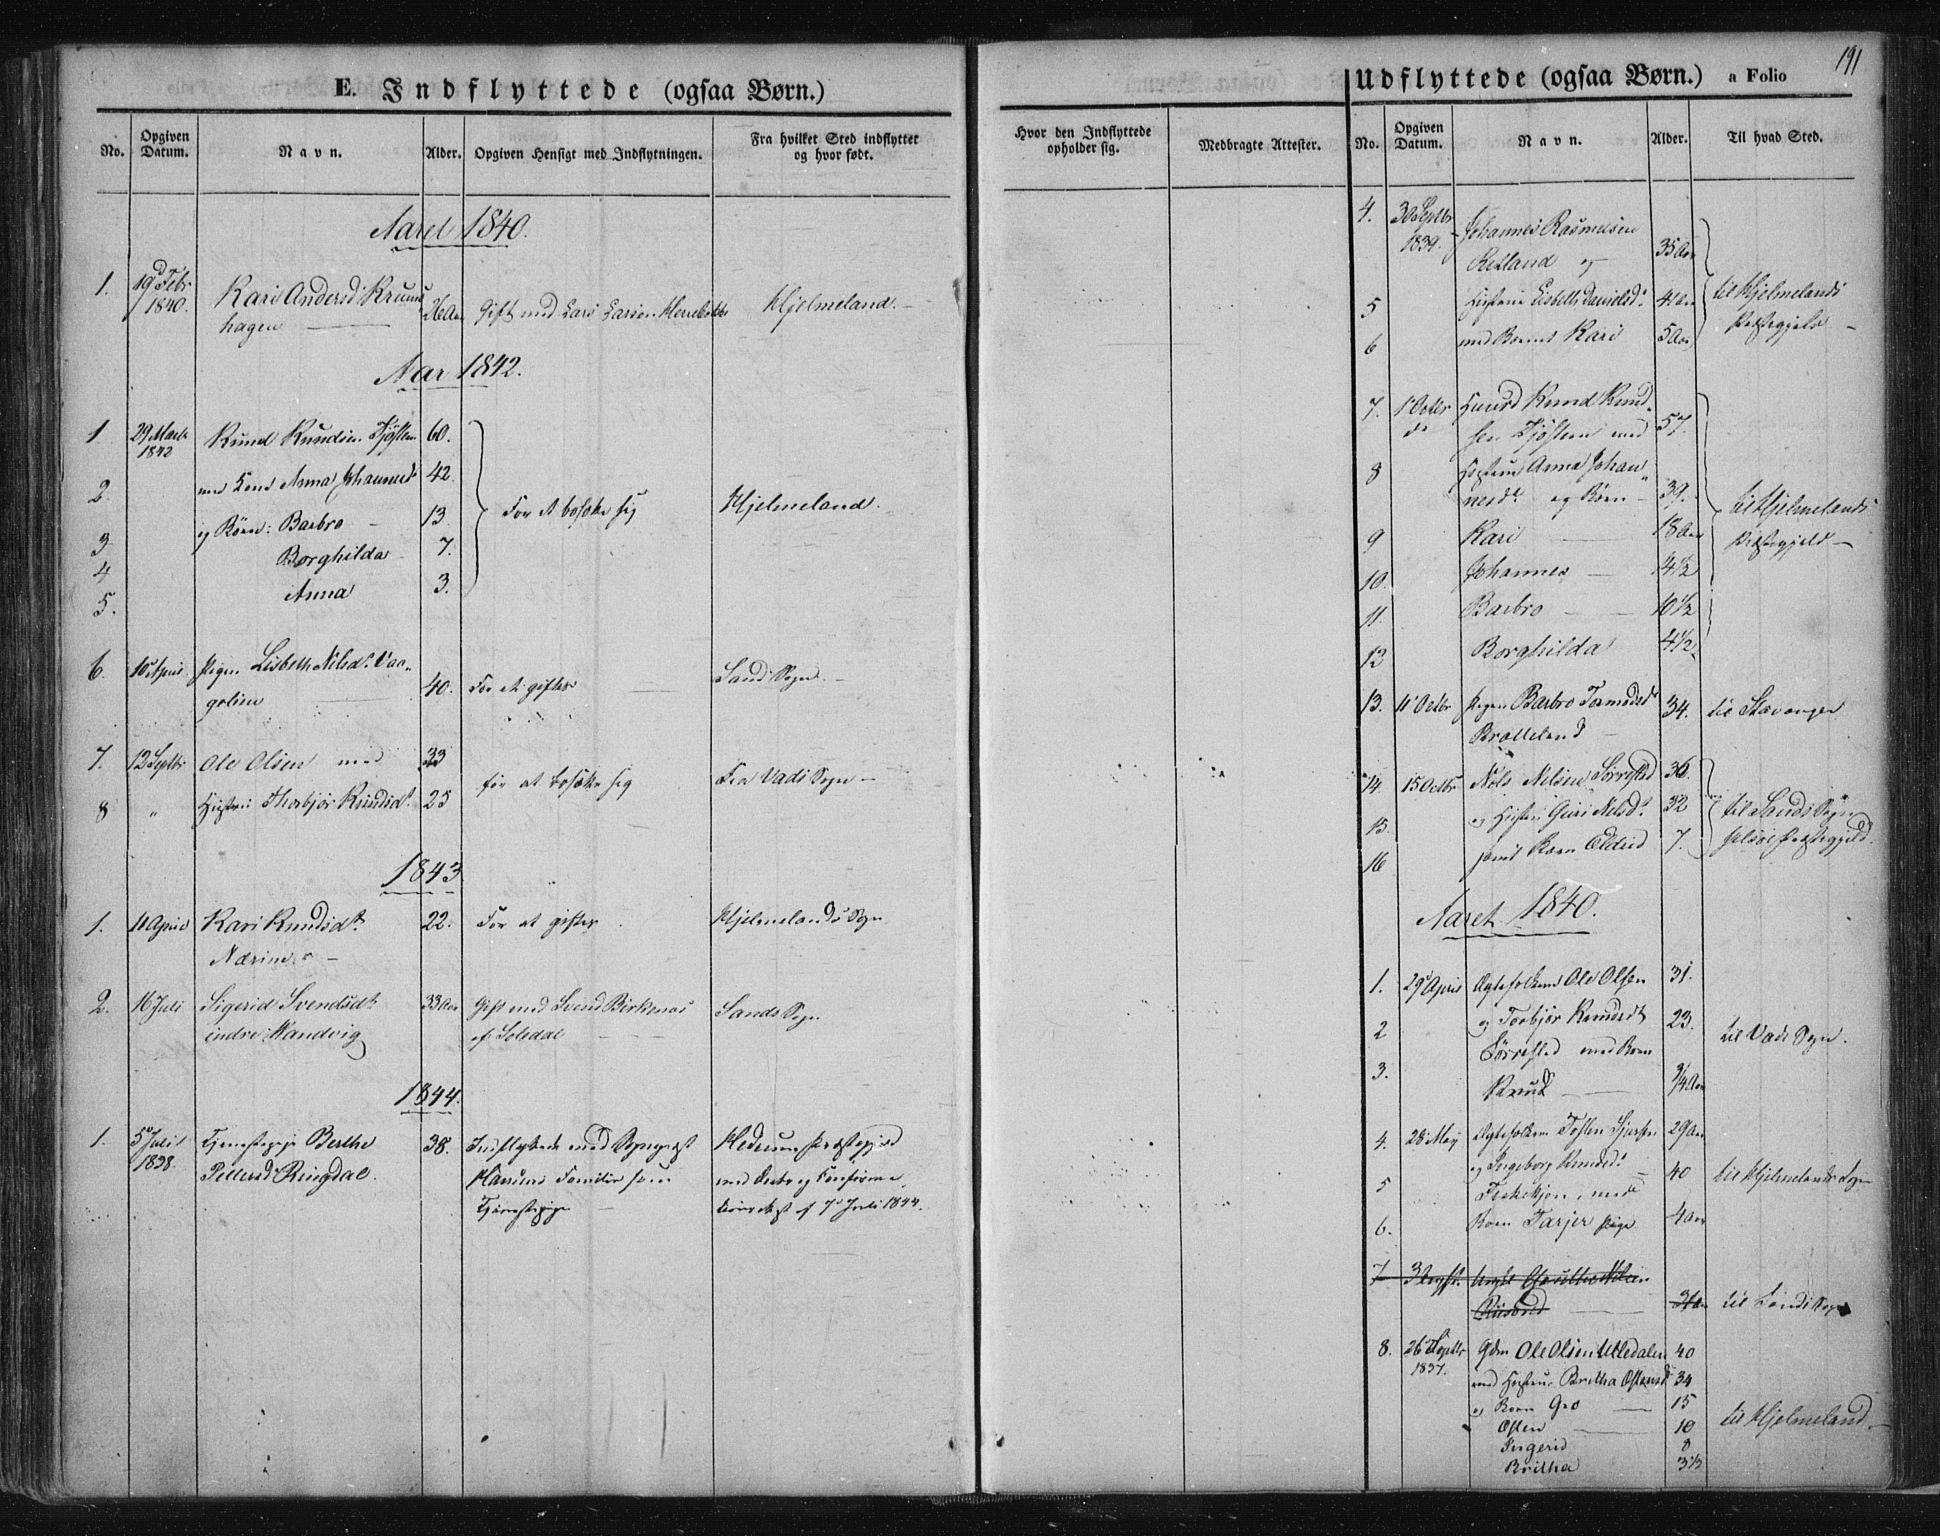 E. Indflyttede (ogsaa Børn.)
No. Opgiven Datum. Navn. Alder. Opgiven Hensigt med Indflytningen. Fra hvilket Sted indflyttet og hvor født.
Aaret 1840.
1. 19d Febr 1840. Kari Andersd. Kruns
hagen 26 Aar Gift med Lars Larsen Hjelmeland.
Aar 1842.
1 29 Marts 1842 Knud Knudsen Tjøsten 60.
2. med Kone Anna Johannesd 42.
3 og Børn: Barbro 13 For at bosætte sig Hjelmeland.
4 Borghilda 7.
5. Anna 3.
6. 10 April Pigen Lisbeth Nilsd. Vaa-
golien 40. For at giftes Sands Sogn.
7. 12 Septbr Ole Olsen med 33
for at bosætte sig Fra Vads Sogn
8 " Hustru Thorbjør Knudsdt. 25
1843
1. 11 April Kari Knudsdt. 22. For at giftes Hjelmelands Sogn
2. 16 Juli Sigerid Svendsdt 33 Aar Gift med Svend Birkenæs Sands Sogn
indre Vandvig af Solsdal
1844.
1. 5 Juli 1838. Tjenestepige Berthe 38. Indflyttede med Sogneprest
Pettersd. Ringdal. Familie som
Tjenestepige
af 7d Juli 1844.
Hvor den Indflyttede opholder sig. Medbragte Attester.
Udflyttede (ogsaa Børn.) a Folio 191
No. Opgiven Datum. Navn. Alder. Til hvad Sted.
4. 30 Septbr 1839. Johannes Rasmusen
Retland og 35 Aar
5 Hustrue Lisbeth Danielsd. til Hjelmelands
6 med Barnet Kari 5 Aar Præstegjeld
7. 1 Octbr do Huusmd Knud Knud-
sen Tjøsten med 57.
8 Hustrue Anna Johan-
nesdt. og Børn 39. til Hjelmelands
9 Kari 18 Aar Præstegjeld
10. Johannes 14½
11. Barbro 10½
12 Borghilda 4½
13. 11 Octbr Pigen Barbro Tormodsd 34. til Stavanger
Bratteland
14 15 Octbr Nils Nilsen Sørrestad 36.
15. og Hustru Guri Nilsd. 32 til Sands Sogn
16 samt Barn Eldrid 7. Jelsøe Præstegjeld.
Aaret 1840.
1. 29 April Ægtefolkene Ole Olsen 31.
2 og Torbjør Knudsdt 23. til Vads Sogn.
Sørrestad med Barn
3. Knud ¾ Aar
4. 28 May Ægtefolkene 29 Aar
5 og Ingeborg Knudsd. 40 til Hjelmelands Sogn
med
6. Barn Tarjer Pige 4 Aar
7 3 Augst. Ungkl.
til Sands Sogn
8. 26 Septbr 1837. Gdm Ole Olsen 40
med Hustru Britha Ostensd 34
og Børn Gro 15 til Hjelmeland
Osten 10
Ingerid 8
Britha 3½